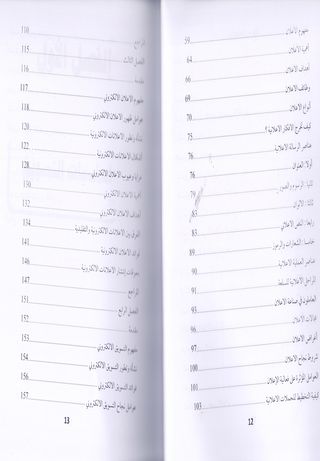 مفهوم الاعلان 59
أهمية الاعلان 64
أهداف الاعلان 66
وظائف الاعلان 69
أنواع الاعلان 70
كيف تخرج الافكار الاعلانية ؟ 75
عناصر الرسالة الاعلانية 76
أولا: العنوان 76
ثانيا: الرسوم والصور 79
ثالثا: الالوان 83
رابعا: النص الاعلاني 83
خامسا: الشعارات والرموز 89
عناصر العملية الاعلانية 90
المراحل الاعلانية للسلعة 91
العاملون في صناعة الاعلان 95
مجالات الاعلان 96
أغراض الاعلان 97
شروط نجاح الاعلان 100
العوامل المؤثرة على فعالية الإعلان 101
كيفية التخطيط للحملات الاعلانية 103
12
المراجع 110
الفصل الثالث 115
مقدمة 116
مفهوم الاعلان الالكتروني 117
عوامل ظهور الاعلان الالكتروني 118
نشأة وتطور الاعلانات الالكترونية 120
أشكال الاعلانات الالكترونية 122
مزايا وعيوب الاعلان الالكتروني 128
أهمية الاعلان الالكتروني 130
أهداف الاعلان الالكتروني 132
الفرق بين الاعلانات الالكترونية والتقليدية 134
فوائد الاعلان الالكتروني 141
معوقات انتشار الاعلانات الالكترونية 146
المراجع 147
الفصل الرابع 151
مقدمة 152
مفهوم التسويق الالكتروني 153
نشأة وتطور التسويق الالكتروني 154
فوائد التسويق الالكتروني 156
عوامل نجاح التسويق الالكتروني 157
13